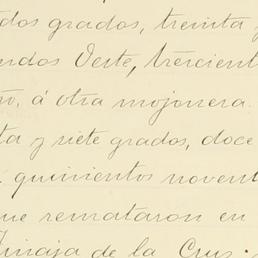 dos grados, treinta y
ndos Oeste, trescient
ón, á otra mojonera.
ta y siete grados, doce
quinientos novent
que remataron en
Tinaja de la Cruz.